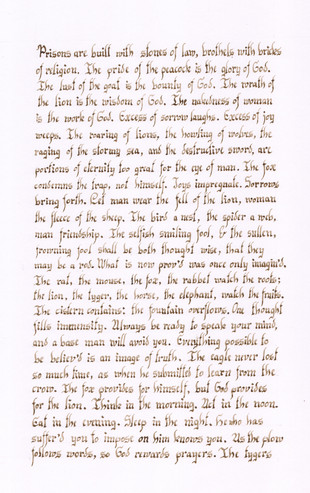 Prisons are built with stones of law, brothels with brides
of religion. The pride of the peacock is the glory of God.
The lust of the goat is the bounty of God. The wrath of
the lion is the wisdom of God. The nakedness of woman
is the work of God. Excess of sorrow laughs. Excess of joy
weeps. The roaring of lions, the howling of wolves, the
raging of the stormy sea, and the destructive sword, are
portions of eternity too great for the eye of man. The fox
condemns the trap, not himself. Joys impregnate. Sorrows
bring forth. Let man wear the fell of the lion, woman
the fleece of the sheep. The bird a nest, the spider a web,
man friendship. The selfish smiling fool, & the sullen,
frowning fool shall be both thought wise, that they
may be a rod. What is now prov'd was once only imagin'd.
The rat, the mouse, the fox, the rabbet watch the roots;
the lion, the tyger, the horse, the elephant, watch the fruits.
The cistern contains: the fountain overflows. One thought
fills immensity. Always be ready to speak your mind,
and a base man will avoid you. Everything possible to
be believ'd is an image of truth. The eagle never lost
so much time, as when he submitted to learn from the
crow. The fox provides for himself, but God provides
for the lion. Think in the morning. Act in the noon.
Eat in the evening. Sleep in the night. He who has
suffer'd you to impose on him knows you. As the plow
follows words, so God rewards prayers. The tygers